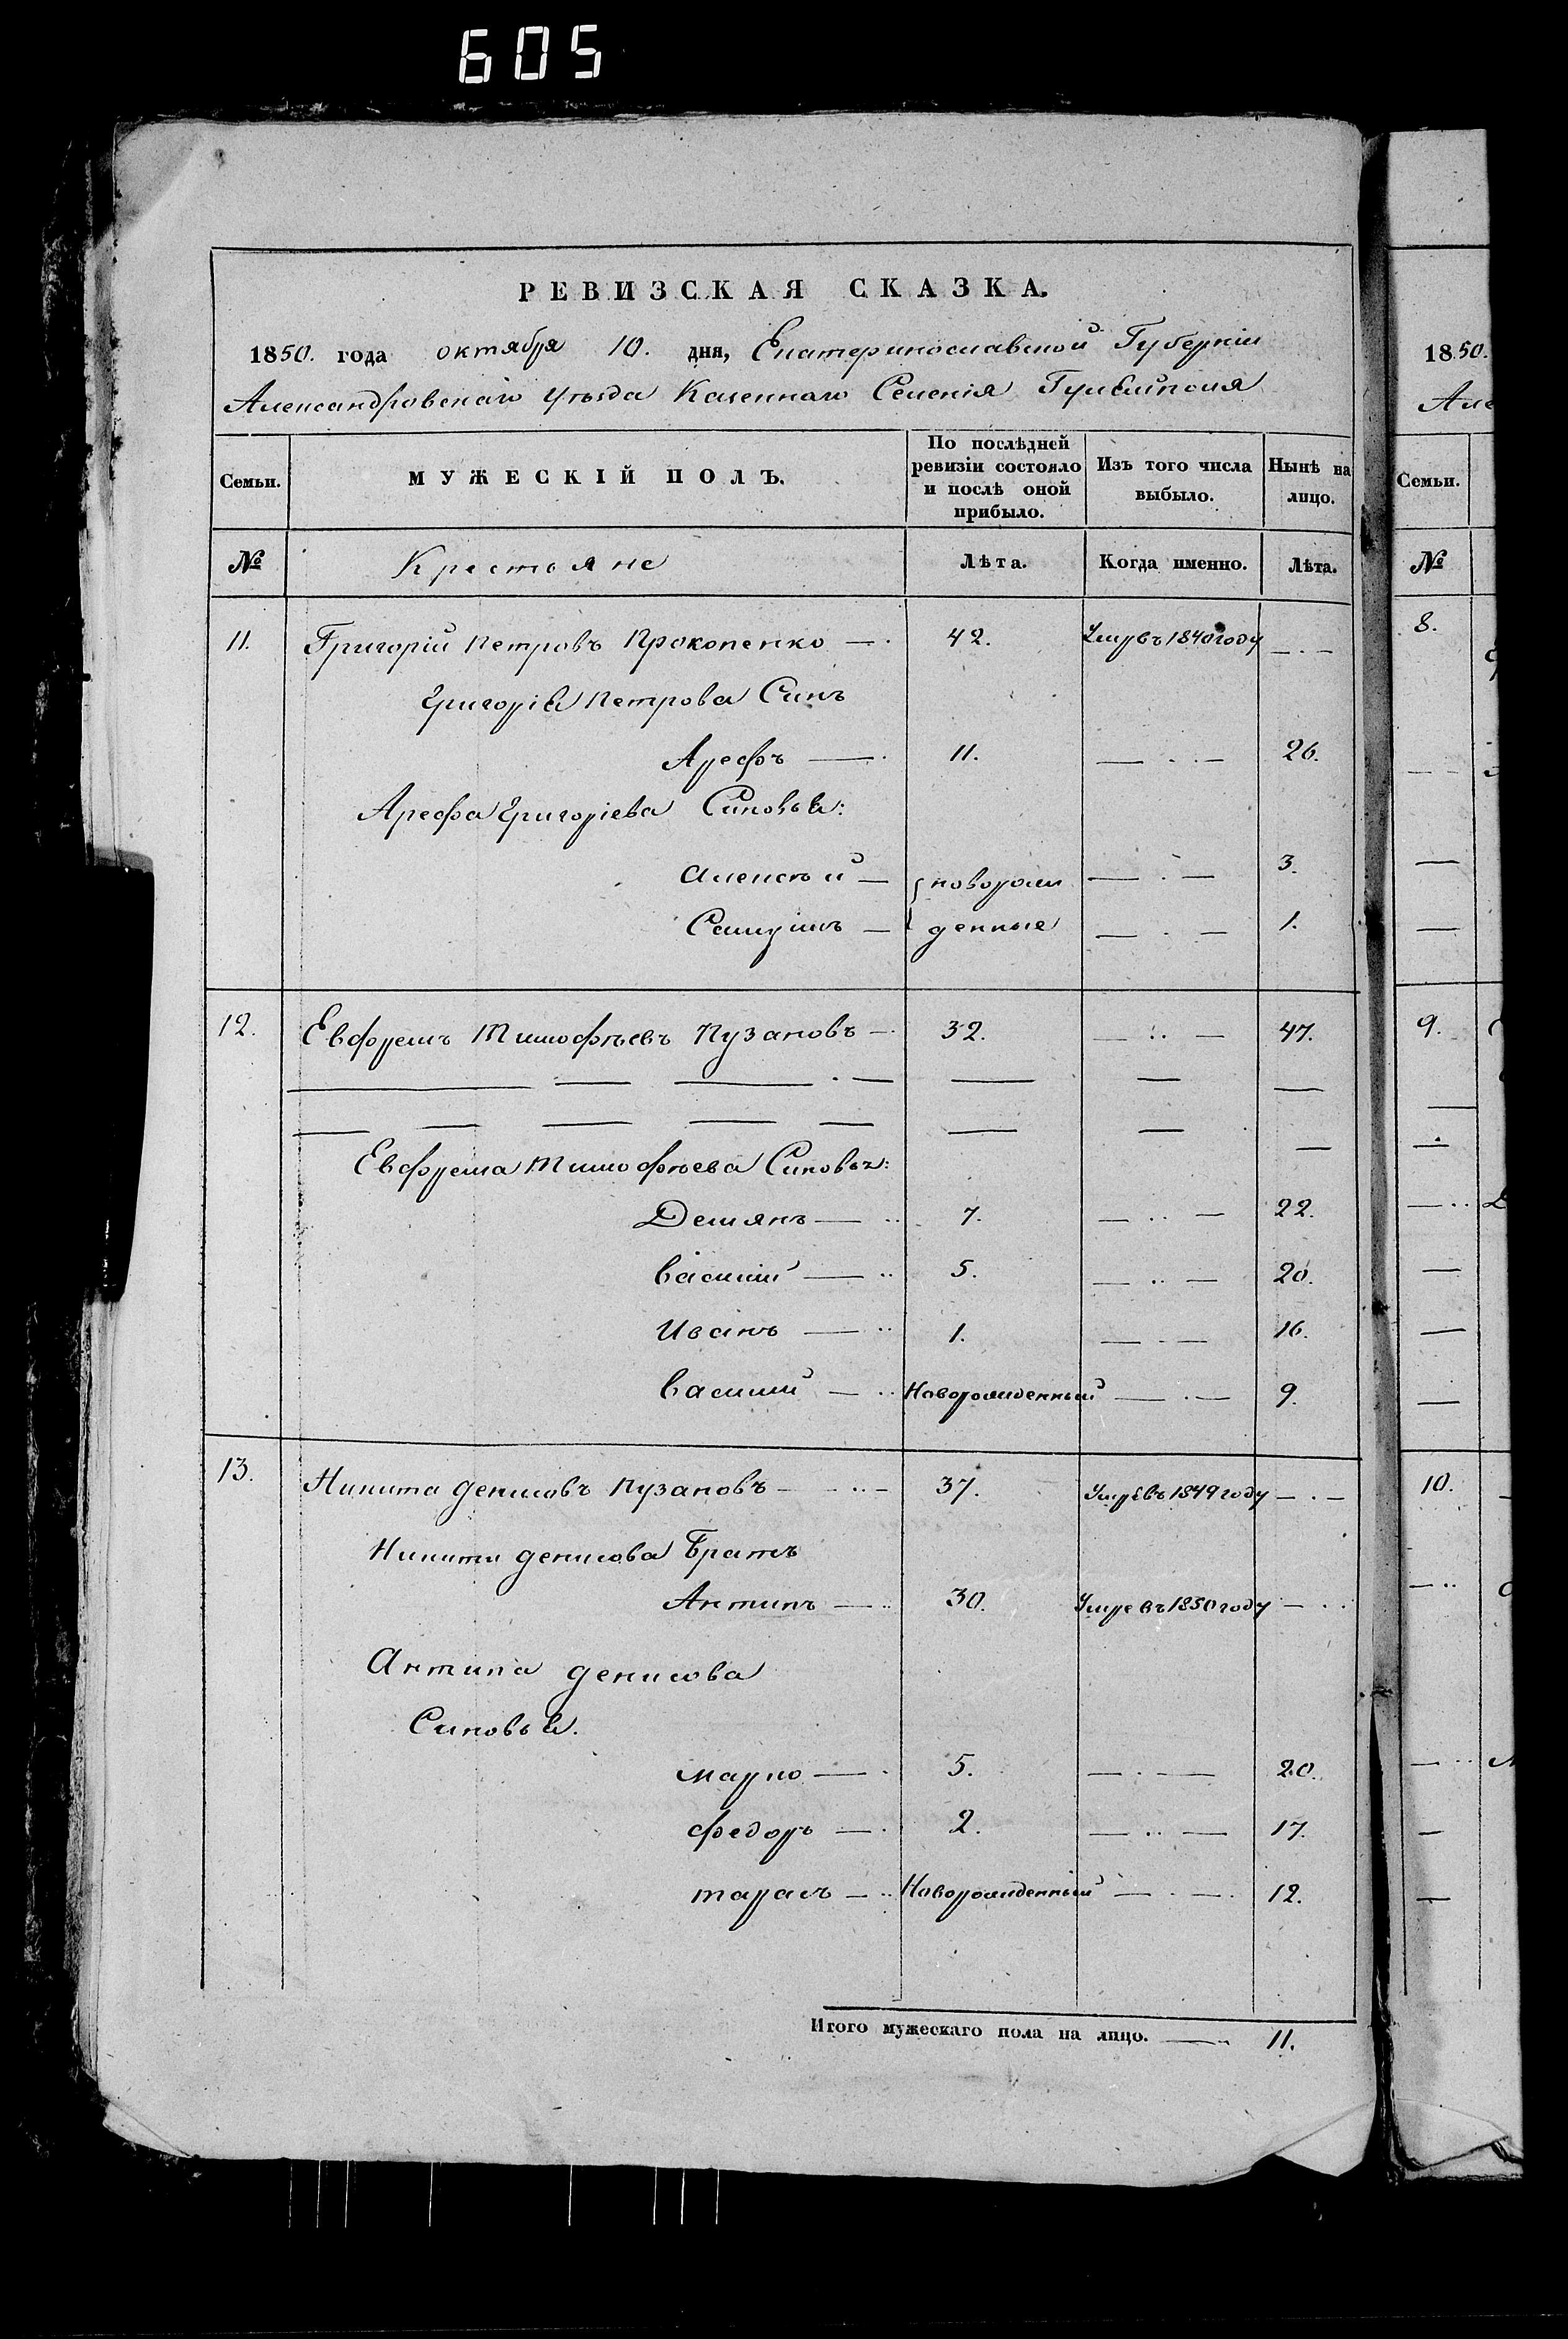 605
РЕВИЗСКАЯ СКАЗКА.
1850. года октября 10. дня, Екатеринославской Губерніи
Александровскаго Уѣзда Казеннаго Селенія Гуляйполя
Семьи. МУЖЕСКІЙ ПОЛЪ. По послѣдней ревизіи состояло и послѣ оной прибыло. Изъ того числа выбыло. Нынѣ на лицо.
№ Крестьяне Лѣта. Когда именно. Лѣта.
11. Григорій Петровъ Прокопенко — . 42. Умръ въ 1840 году — . —
Григорія Петрова Синъ
Арефъ — . 11. — . . — 26.
Арефа Григоріева Синовья:
Алексѣй — новорож — . — 3.
Самуилъ — денные — . — 1.
12. Евфремъ Тимофѣевъ Пузановъ — . 32. — .. — 47.
Евфрема Тимофѣева Синовья:
Демянъ — .. 7. — .. — 22.
Василий — .. 5. — .. — 20.
Иванъ — .. 1. — . — 16.
Василий — .. Новорожденный — . — 9.
13. Никита Денисовъ Пузановъ — .. — 37. Умревъ 1849 году — . —
Никити Денисова Братъ
Антипъ — .. 30. Умревъ 1850 году — . .
Антипа Денисова
Синовья.
Марко — . 5. — . — 20.
Федоръ — . 2. — .. — 17.
Тарасъ — .. Новорожденный — . — . 12.
Итого мужескаго пола на лицо. — .. 11.
1850.
Але
Семьи.
№
8.
9.
10.